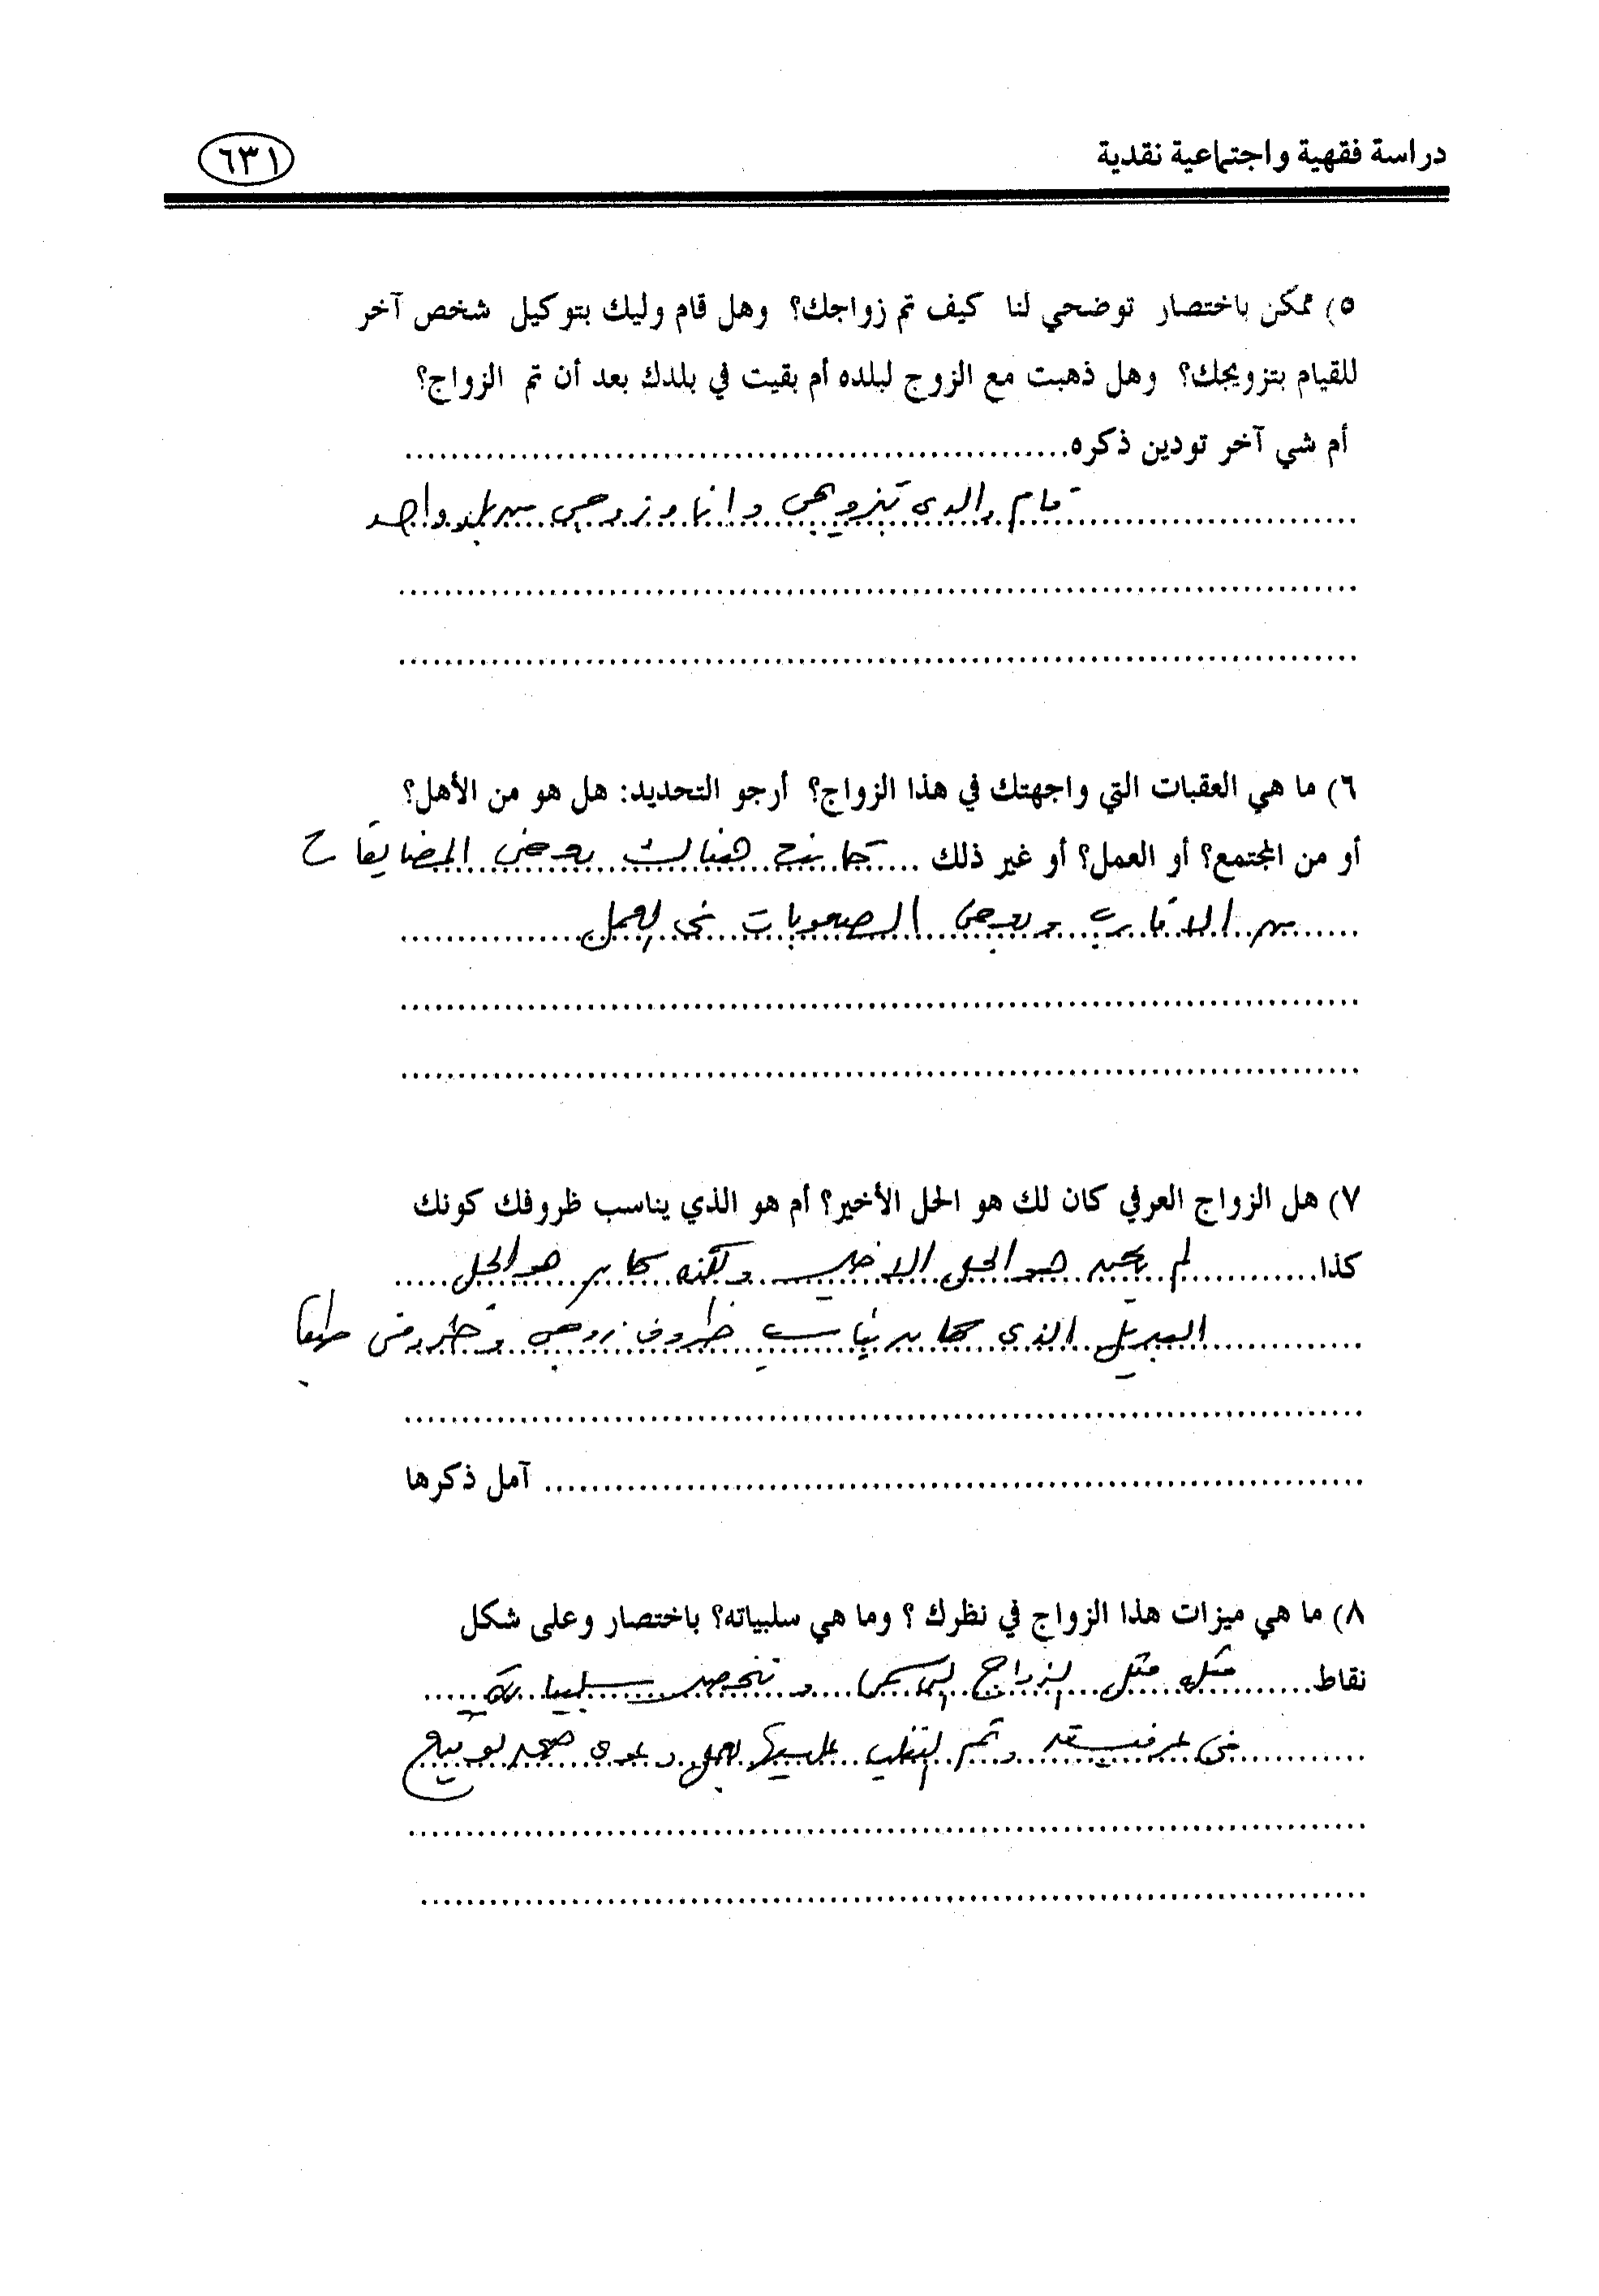 دراسة فقهية واجتماعية نقدية
٦٣١
٥) ممكن باختصار توضحي لنا كيف تم زواجك؟ وهل قام وليك بتوكيل شخص آخر
للقيام بتزويجك؟ وهل ذهبت مع الزوج لبلده أم بقيت في بلدك بعد أن تم الزواج؟
أم شي آخر تودين ذكره................................................
قام والدي بتزويجي وانا وزوجي من بلد واحد
٦) ما هي العقبات التي واجهتك في هذا الزواج؟ أرجو التحديد: هل هو من الأهل؟
أو من المجتمع؟ أو العمل؟ أو غير ذلك .... كانت هنالك بعض المضايقات
من الاقارب وبعض الصعوبات في العمل
٧) هل الزواج العرفي كان لك هو الحل الأخير؟ أم هو الذي يناسب ظروفك كونك
كذا............ لم يكن هو الحل الاخير ولكنه كان هو الحل .....
البديل الذي كان يناسب ظروف زوجي وظروفي
................................................ آمل ذكرها
٨) ما هي ميزات هذا الزواج في نظرك ؟ وما هي سلبياته؟ باختصار وعلى شكل
نقاط....... مثله مثل الزواج الرسمي وتنحصر سلبياته .....
في عرفيته وتم التغلب عليها